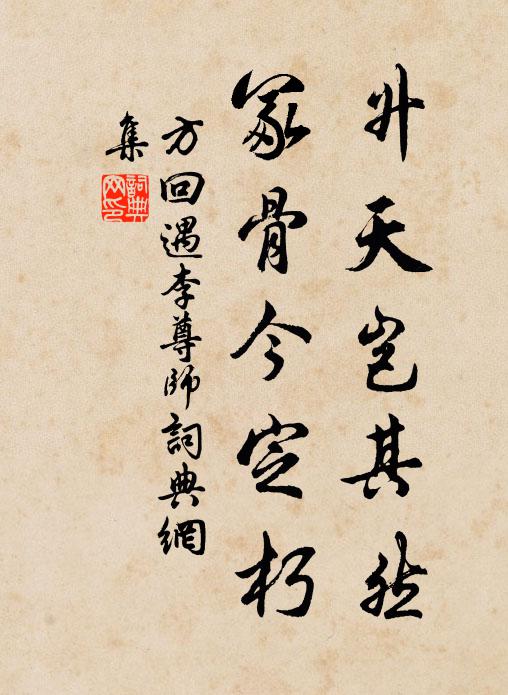 升天岂其然
冢骨今定朽
方回遇李尊師詞典網
集
詞典網印